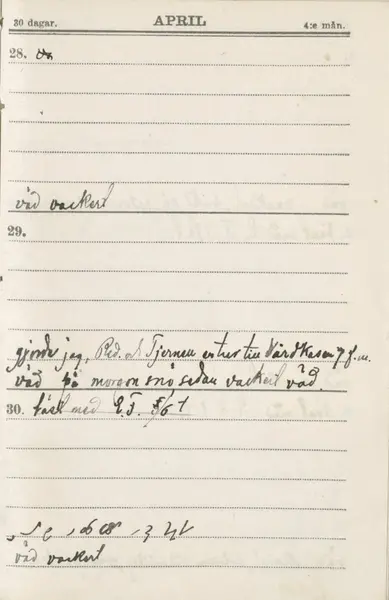 30 dagar. APRIL 4:e mån.
28.
väd vackert
29.
gjorde jag, Red. och Tjernen en tur till Vårdkasen 7 f.m.
väd på morgon snö sedan vackert väd.
30. läst med E.F. 
väd vackert